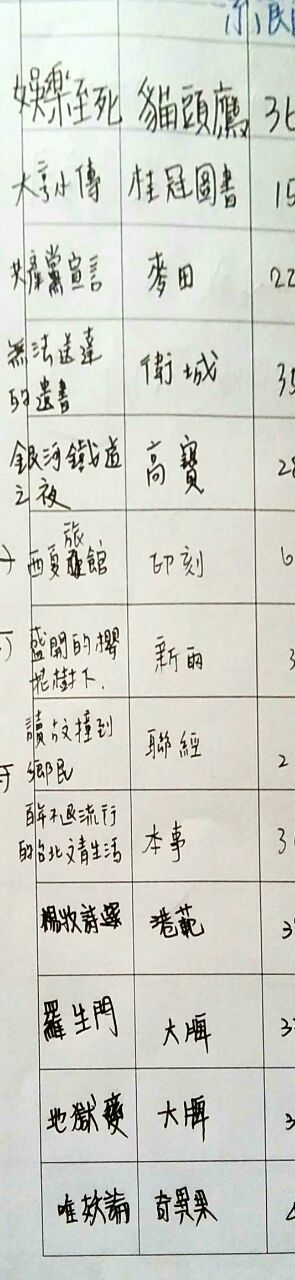 娛樂至死 貓頭鷹 36
大亨小傳 桂冠圖書 15
共產黨宣言 麥田 22
無法送達
的遺書 衛城 35
銀河鐵道
之夜 高寶 28
西夏旅館 印刻 6
盛開的櫻
花樹下 新雨 3
讀古文撞到
鄉民 聯經 2
百年不退流行
的台北文青生活 本事 3
楊牧詩選 洪範 3
羅生門 大牌 3
地獄變 大牌 3
唯妖論 奇異果